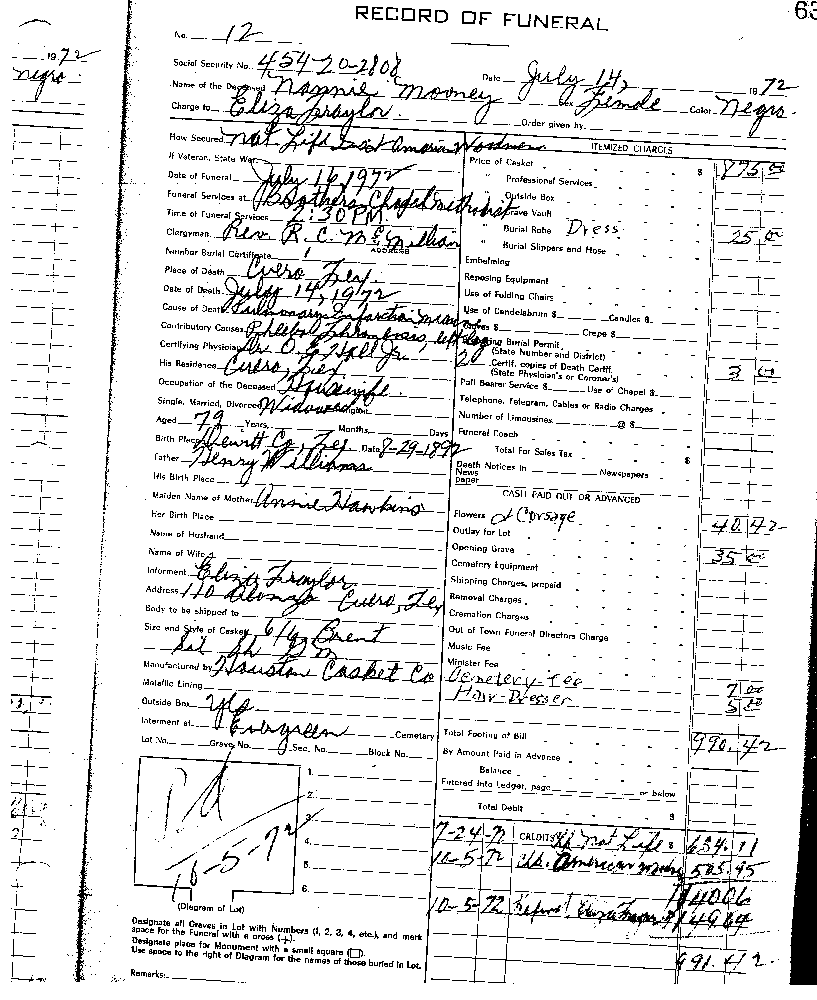 RECORD OF FUNERAL
63
No. 12
1972
negro
Social Security No. 454-20-2808 Date July 14, 1972
Name of the Deceased Nannie Mooney Sex Female Color Negro.
Charge to Eliza Traylor. Order given by
How Secured Nat. Life American Woodmen
If Veteran, State War
Date of Funeral July 16, 1972
Funeral Services at Brothers Chapel Methodist
Time of Funeral Services 2:30 PM
Clergyman Rev. R. C. McMillian
ADDRESS
Number Burial Certificate
Place of Death Cuero, Tex.
Date of Death July 14, 1972
Cause of Death Pulmonary Infarction
Contributory Causes Phlebo Thrombosis, left leg
Certifying Physician Dr. O. G. Hall Jr.
His Residence Cuero, Tex
Occupation of the Deceased Housewife
Single, Married, Divorced Widowed
Aged 79 Years, Months, Days
Birth Place Dewitt Co, Tex Date 8-29-1892
Father Henry Williams
His Birth Place
Maiden Name of Mother Annie Hawkins
Her Birth Place
Name of Husband
Name of Wife
Informent Eliza Traylor
Address 110 Cuero, Tex
Body to be shipped to
Size and Style of Casket 6/6 Brent
Sil
Manufactured by Houston Casket Co
Metallic Lining
Outside Box yes
Interment at Evergreen Cemetary
Lot No. Grave No. Sec. No. Block No.
1.
2.
3.
4.
5.
6.
Pd
10-5-72
(Diagram of Lot)
Designate all Graves in Lot with Numbers (1, 2, 3, 4, etc.), and mark
space for the Funeral with a cross (+).
Designate place for Monument with a small square (□).
Use space to the right of Diagram for the names of those buried in Lot.
Remarks:
ITEMIZED CHARGES
Price of Casket $ 875 00
" Professional Services
" Outside Box
" Grave Vault
" Burial Robe Dress 25 00
" Burial Slippers and Hose
Embalming
Reposing Equipment
Use of Folding Chairs
Use of Candelabrum $ Candles $
Gloves $ Crepe $
Burial Permit
(State Number and District)
2 Certif. copies of Death Certif. 3 00
(State Physician's or Coroner's)
Pall Bearer Service $ Use of Chapel $
Telephone, Telegram, Cables or Radio Charges
Number of Limousines @ $
Funeral Coach
Total For Sales Tax $
Death Notices in Newspapers
News
paper
CASH PAID OUT OR ADVANCED
Flowers & Corsage 40.42
Outlay for Lot
Opening Grave 35 00
Cemetery Equipment
Shipping Charges, prepaid
Removal Charges
Cremation Charges
Out of Town Funeral Directors Charge
Music Fee
Minister Fee
Cemetery-Fee 7 00
Hair-Dresser 5 00
Total Footing of Bill 990.42
By Amount Paid in Advance
Balance
Entered into Ledger, page or below
Total Debit $
7-24-72 CREDITS Nat Life $ 634.11
10-5-72 Ck. American 505.95
114006
10-5-72 Refund Eliza Traylor 14964
991.42